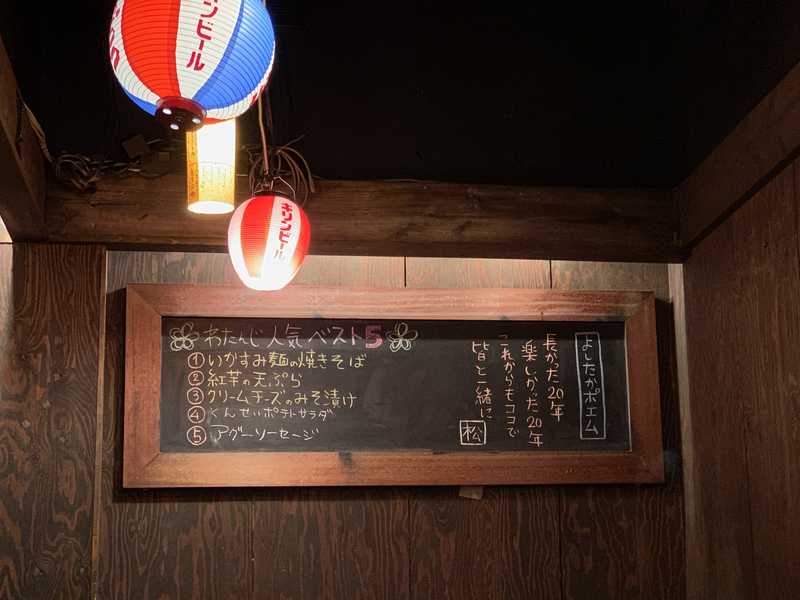 キリンビール
キリンビール
わたんじ人気ベスト5
①いかすみ麺の焼きそば
②紅芋の天ぷら
③クリームチーズのみそ漬け
④くんせいポテトサラダ
⑤アグーソーセージ
よしたかポエム
長かった20年
楽しかった20年
これからもココで
皆と一緒に
松